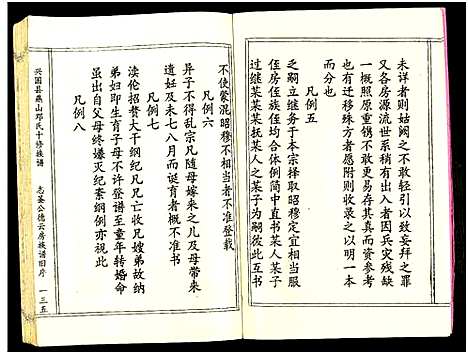 未详者则姑阙之不敢轻引以致妄拜之罪
又各房源流世次生殁葬向之因兵灾残缺
一概照原重镌不敢更易存其真而资参考
而有迁移殊方者愿附则收录之以明一本
而分也
凡例五
之嗣立继务于本宗择取昭穆定宜相当服
侄房侄族侄均合体例简中直书某人某子
过继某某某抚某人之某子为嗣彼此互书
不使蒙混昭穆不相当者不准登载
凡例六
异子不得乱宗凡随母嫁来之儿及母带来
遗妊及未七八月而诞育者概不准书
凡例七
渎伦招赘大干纲纪凡兄亡收兄嫂弟故纳
弟妇即生育子母不许登谱至童年转婚命
虽出自父母终嫌灭纪紊纲例亦视此
凡例八
兴国县燕山邓氏十修族谱
志荃公德云房族谱旧序
一三五